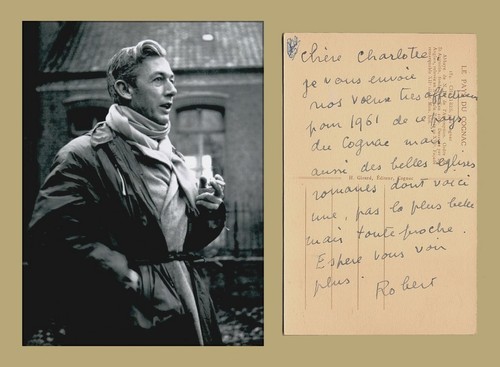 Chère Charlotte,
je vous envoie
nos vœux très affectueux
pour 1961 de ce pays
du Cognac mais
aussi des belles églises
romanes dont voici
une, pas la plus belle
mais toute proche.
Espère vous voir
plus. Robert
LE PAYS DU COGNAC
H. Girard, Éditeur, Cognac